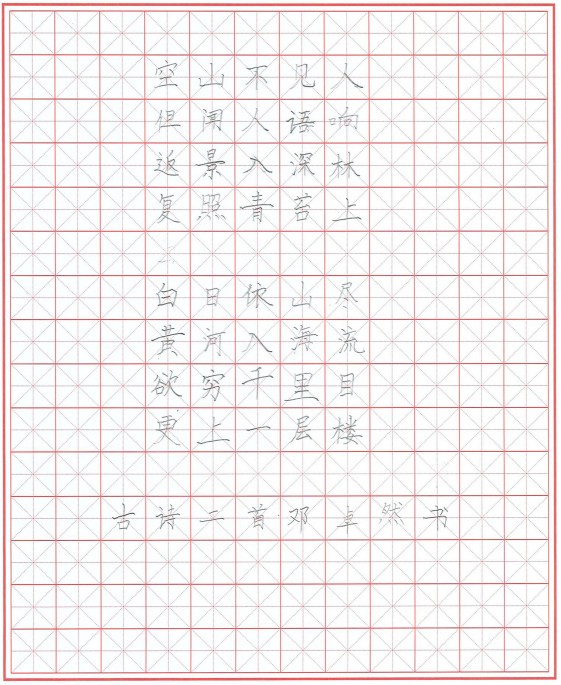 空山不见人
但闻人语响
返景入深林
复照青苔上
白日依山尽
黄河入海流
欲穷千里目
更上一层楼
古诗二首邓卓然书